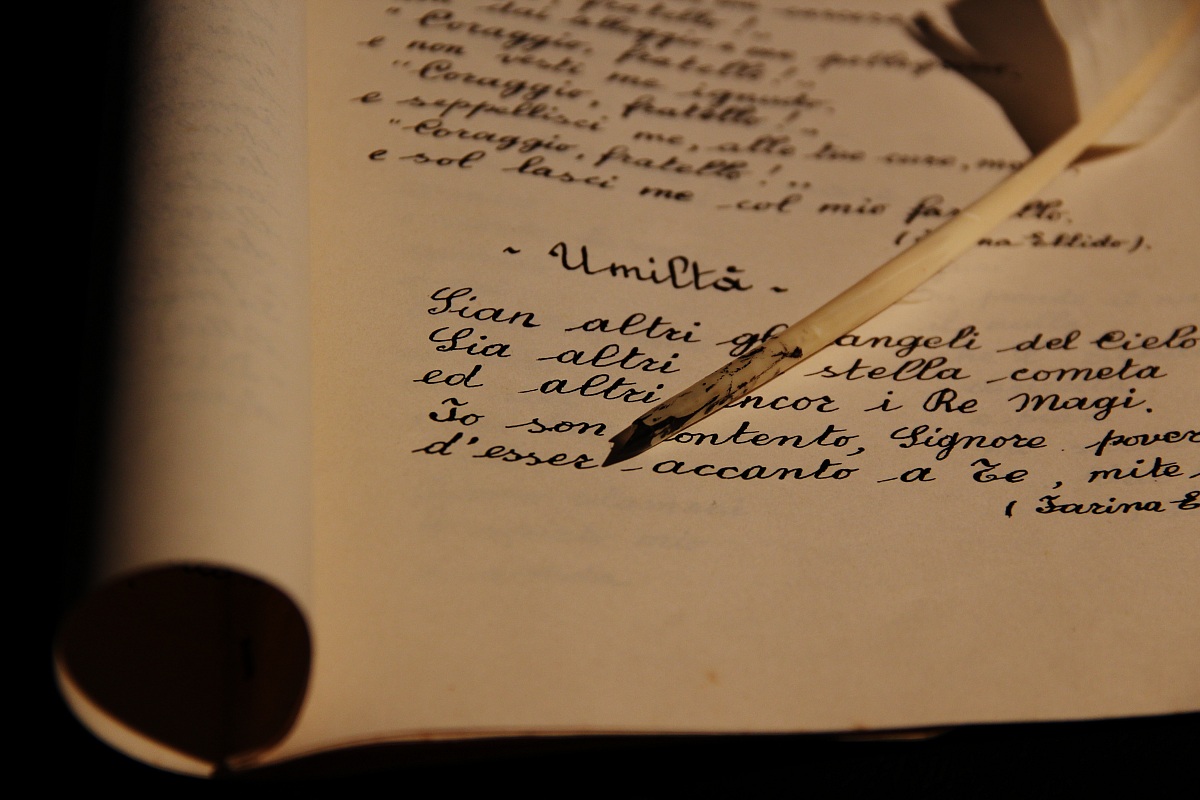 "Coraggio, fratello!"
e non vesti me ignudo.
"Coraggio, fratello!"
e seppellisci me, alle tue cure,
"Coraggio, fratello!"
e sol lasci me col mio
Ellido).
~ Umiltà ~
Sian altri gli angeli del Cielo
Sia altri stella cometa
ed altri ancor i Re Magi.
Io son contento, Signore
d'esser accanto a Te, mite
(Farina E